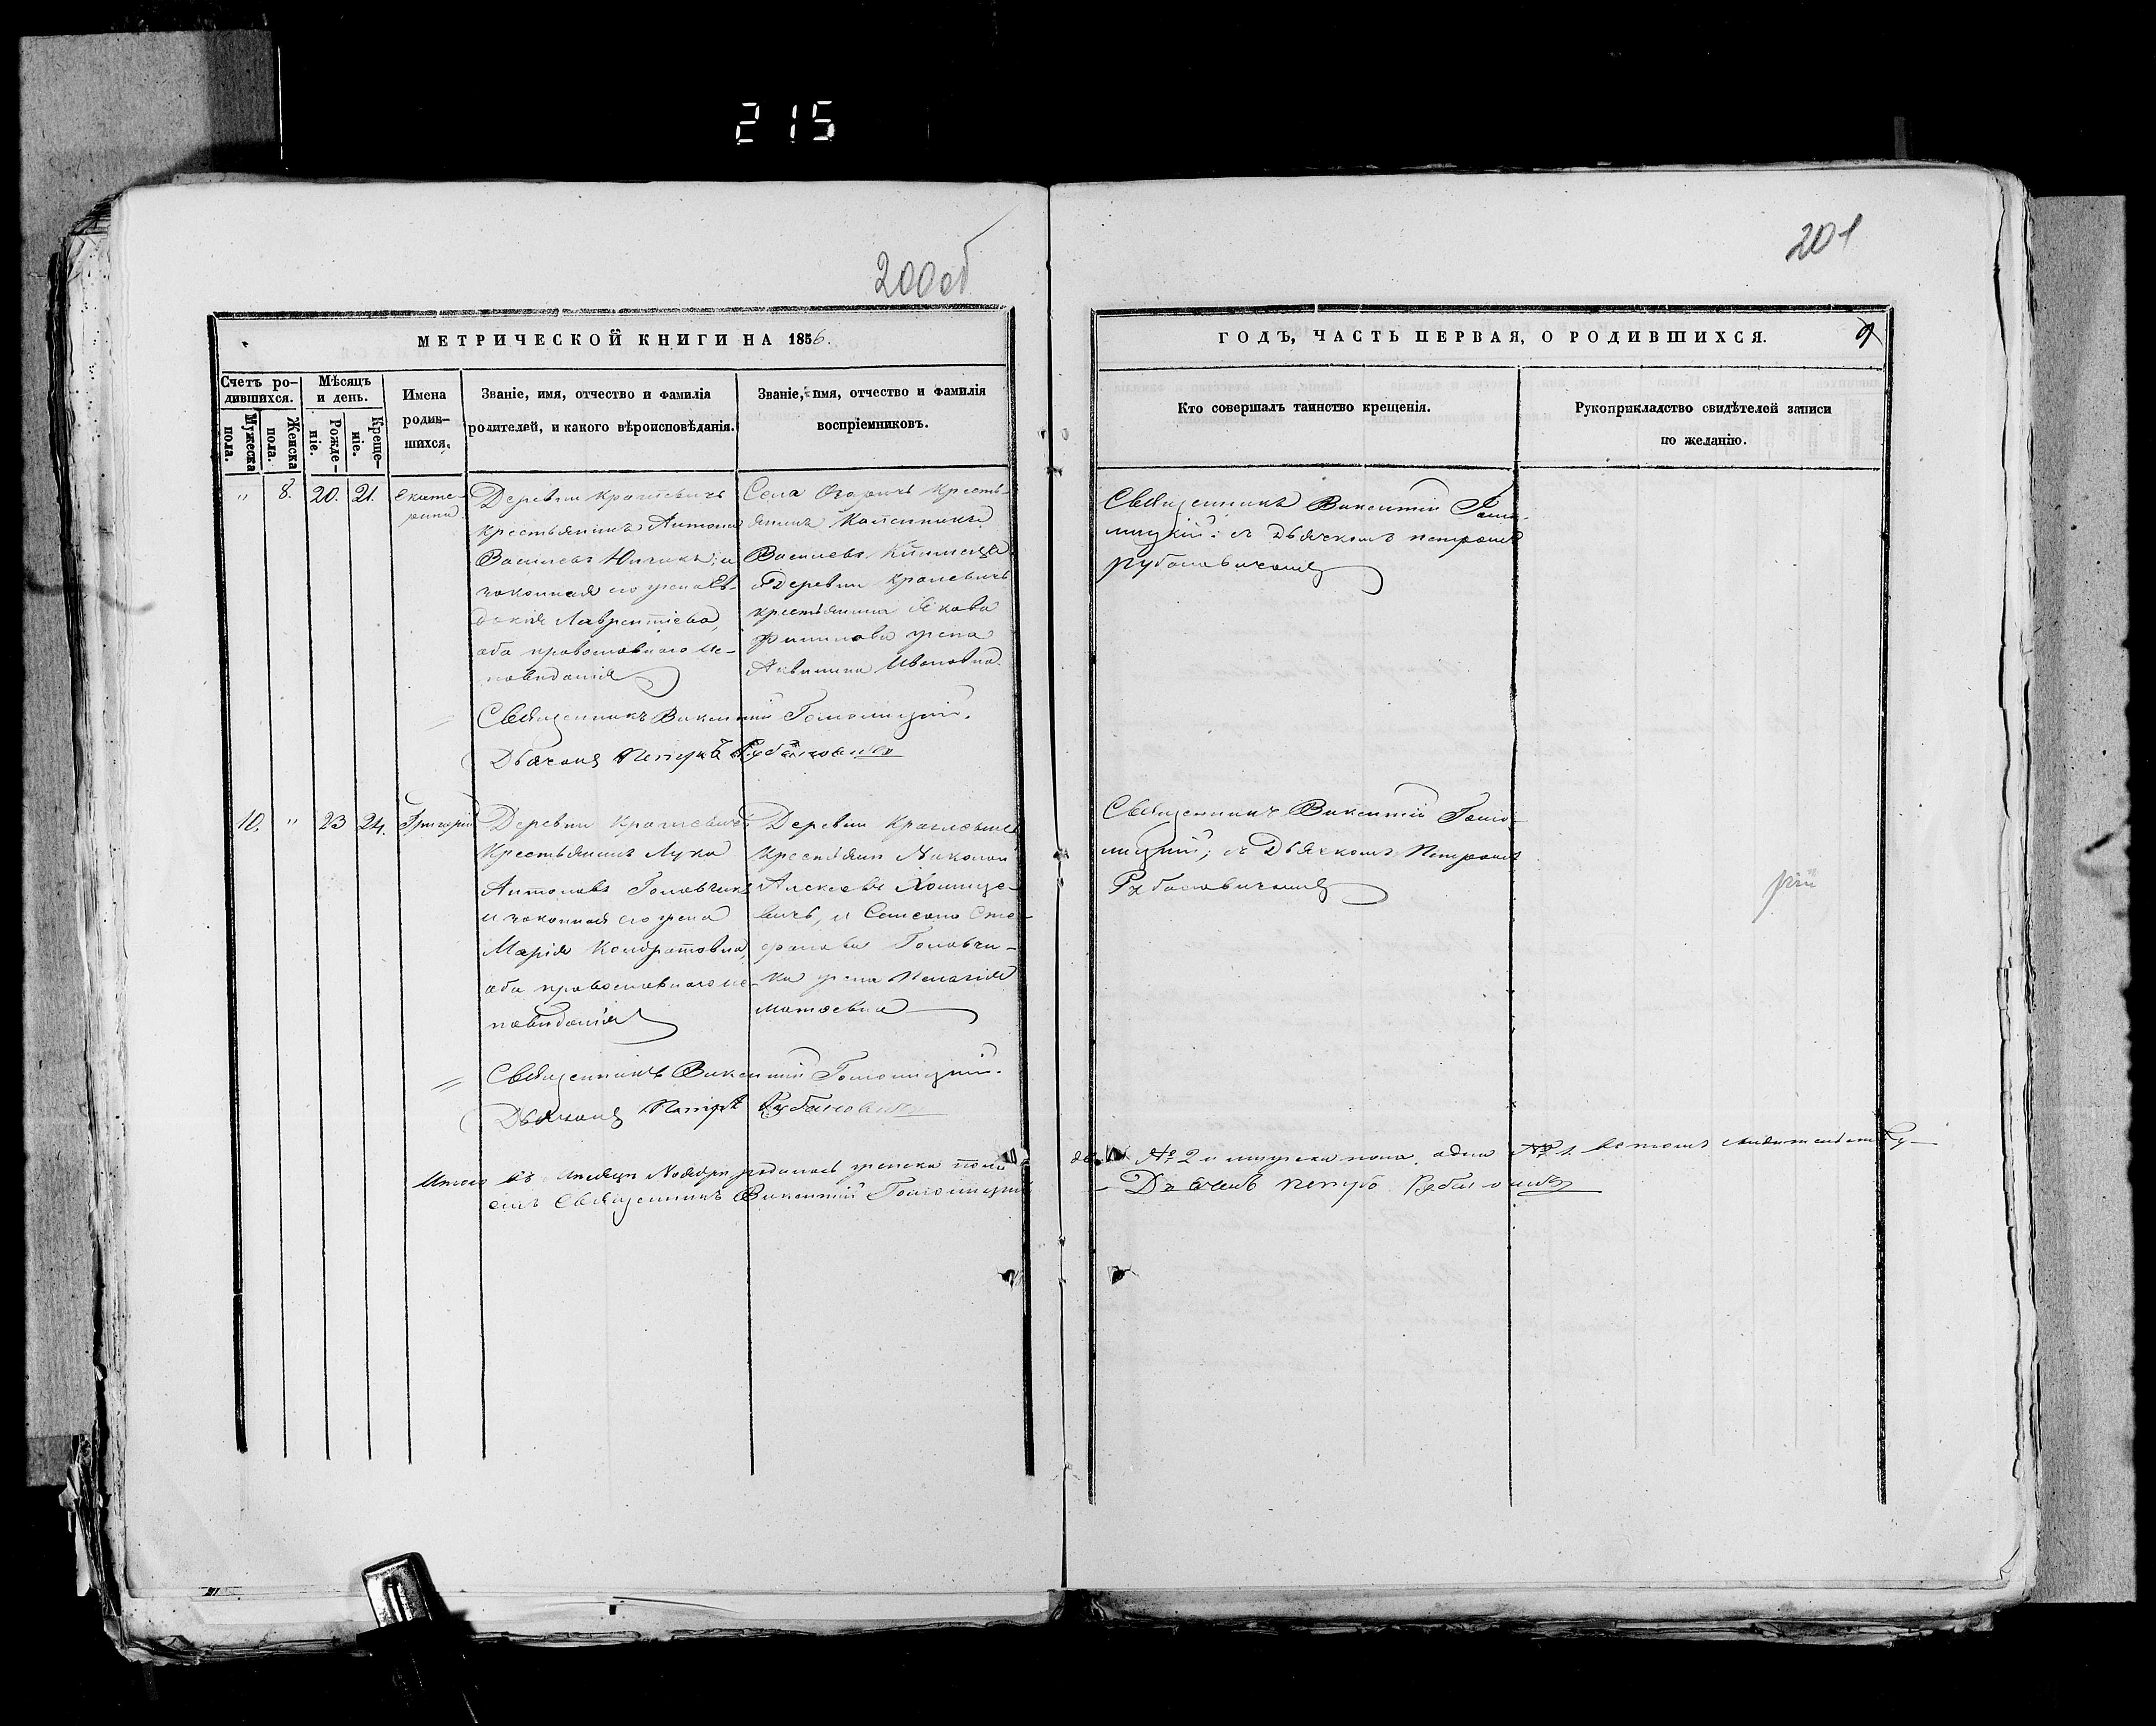 215
200об
201
МЕТРИЧЕСКОЙ КНИГИ НА 1856.
ГОДЪ, ЧАСТЬ ПЕРВАЯ, О РОДИВШИХСЯ.
9
Счетъ ро-
дившихся.
Мужеска
пола.
Женска
пола.
Мѣсяцъ
и день.
Рожде-
ніе.
Креще-
ніе.
Имена
родив-
шихся.
Званіе, имя, отчество и фамилія
родителей, и какого вѣроисповѣданія.
Званіе, имя, отчество и фамилія
воспріемниковъ.
Кто совершалъ таинство крещенія.
Рукоприкладство свидѣтелей записи
по желанію.
" 8. 20. 21.
Екате-
рина
Деревни
крестьянинъ Антонъ
Васильевъ и
законная его жена Ев-
докія Лаврентіева,
оба православнаго ис-
повѣданія
Села кресть-
янинъ
Васильевъ
и Деревни
крестьянина Якова
Филипова жена
Акилина Ивановна.
Священникъ Викентій Гомо-
лицкій: съ Дьячкомъ Петромъ
Рубановичемъ
Священникъ Викентій Гомолицкій.
Дьячокъ Петръ Рубановичъ
10. " 23 24.
Григорій
Деревни
Крестьянинъ Лука
Антоновъ Головчикъ
и законная его жена
Марія Кондратовна,
оба православнаго ис-
повѣданія
Деревни
Крестьянин Николай
Алексѣевъ
вичъ, и Самсона Сте-
фанова Головчи-
ка жена Пелагія
Матѳеевна
Священникъ Викентій Гомо-
лицкій; съ Дьячкомъ Петромъ
Рубановичемъ
Священникъ Викентій Гомолицкій.
Дьячокъ Петръ Рубановичъ
Итого въ мѣсяцѣ Ноябрѣ родилось женска пола
№ 2 и мужеска пола одинъ № 1. въ томъ свидѣтельству-
емъ Священникъ Викентій Гомолицкій
Дьячекъ Петръ Рубановичъ